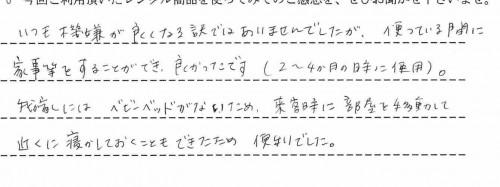 今回ご利用頂いたレンタル商品を使ってみてのご感想を、ぜひお聞かせ下さいませ。
いつも不機嫌が良くなる訳ではありませんでしたが、使っている間に
家事等をすることができ、良かったです（2～4か月の時に使用）。
我家にはベビーベッドがないため、来客時に部屋を移動して
近くに寝かしておくこともできたため便利でした。